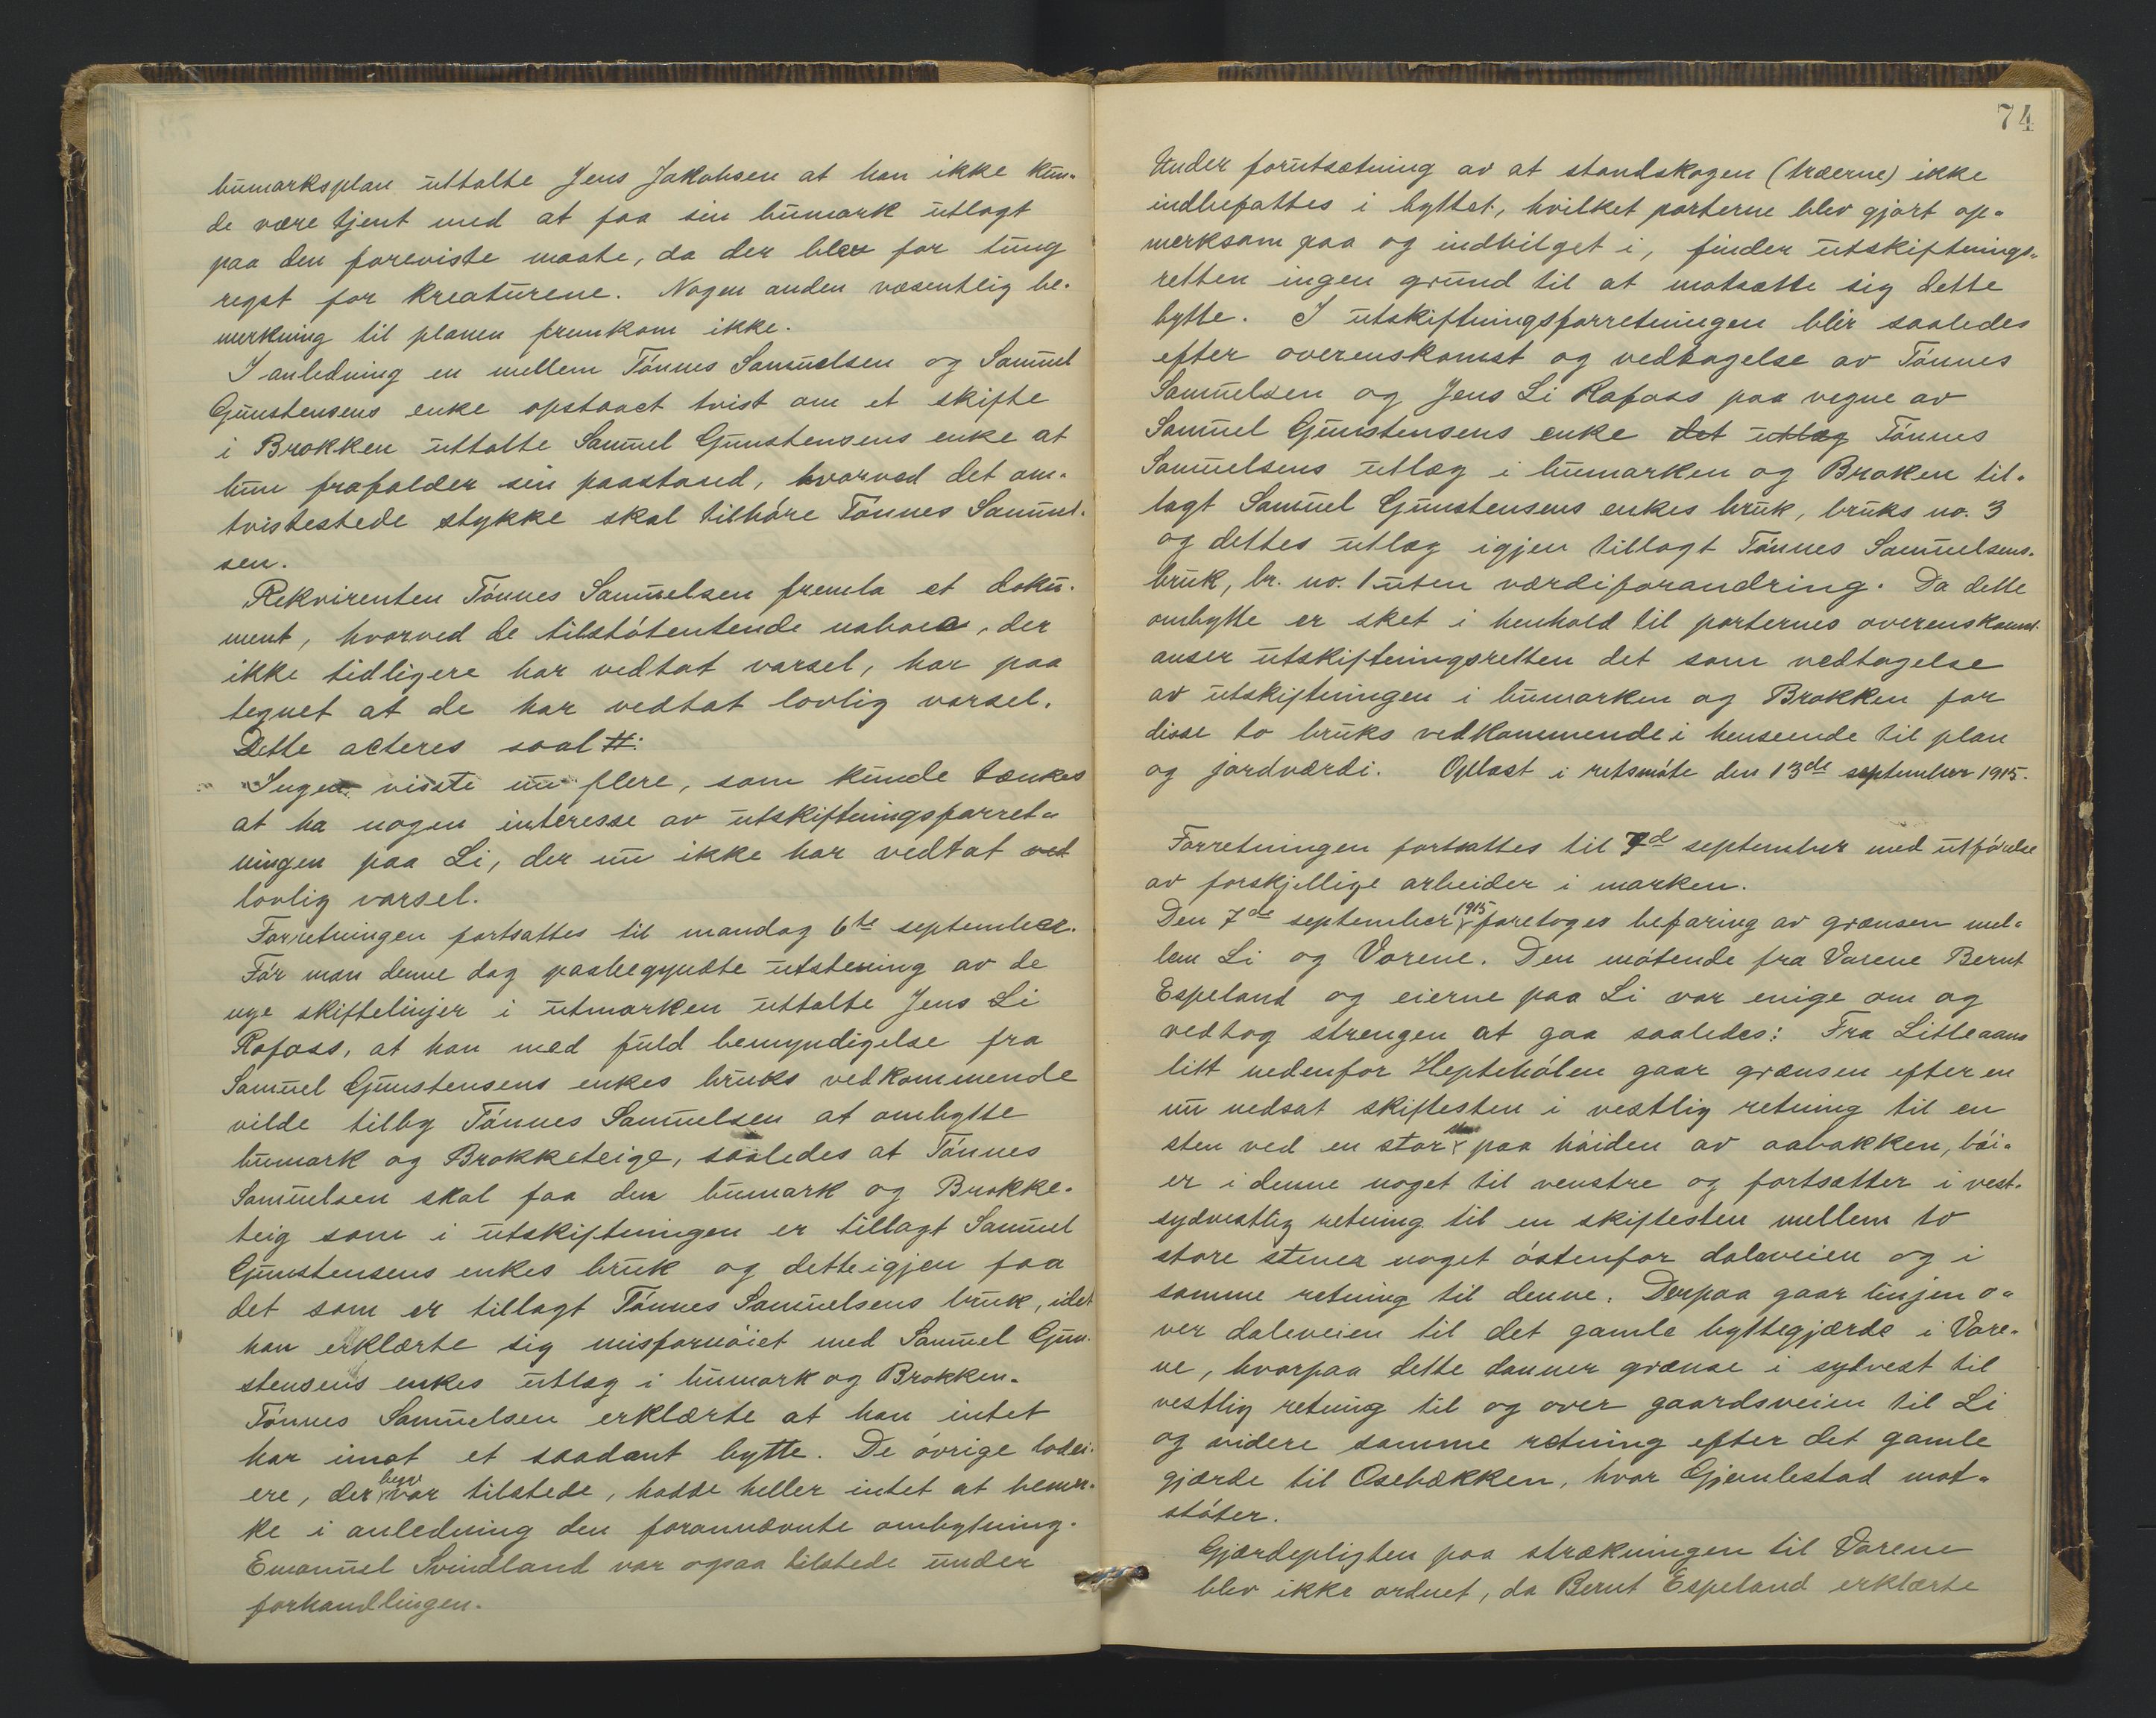 bumarksplan uttalte Jens Jakobsen at han ikke kun-
de være tjent med at faa sin bumark utlagt
paa den foreviste maate, da der blev for tung
regst for kreaturene. Nogen anden væsentlig be-
merkning til planen fremkom ikke.
I anledning en mellem Tönnes Samuelsen og Samuel
Gunstensens enke opstaaet tvist om et skifte
i Brokken uttalte Samuel Gunstensens enke at
hun frafalder sin paastand, hvorved det om-
tvistestede stykke skal tilhöre Tönnes Samuel-
sen.
Rekvirenten Tönnes Samuelsen fremla et doku-
ment, hvorved de tilstötentende naboer, der
ikke tidligere har vedtat varsel, har paa
tegnet at de har vedtat lovlig varsel.
Dette acteres saal #:
Ingen visste nu flere, som kunde tænkes
at ha nogen interesse av utskiftningsforret-
ningen paa Li, der nu ikke har vedtat ved
lovlig varsel.
Forretningen fortsattes til mandag 6te september.
För man denne dag paabegyndte utstening av de
nye skiftelinjer i utmarken uttalte Jens Li
Rafoss, at han med fuld bemyndigelse fra
Samuel Gunstensens enkes bruks vedkommende
vilde tilby Tönnes Samuelsen at ombytte
bumark og Brokketeige, saaledes at Tönnes
Samuelsen skal faa den bumark og Brokke-
teig som i utskiftningen er tillagt Samuel
Gunstensens enkes bruk og dette igjen faa
det som er tillagt Tönnes Samuelsens bruk, idet
han erklærte sig misfornöiet med Samuel Gun-
stensens enkes utlæg i bumark og Brokken.
Tönnes Samuelsen erklærte at han intet
har imot et saadant bytte. De övrige lodei-
ere, der herv var tilstede, hadde heller intet at bemer-
ke i anledning den forannævnte ombytning.
Emanuel Svindland var ogsaa tilstede under
forhandlingen.
74
Under forutsætning av at standskogen (træerne) ikke
indbefattes i byttet, hvilket parterne blev gjort op-
merksom paa og indvilget i, finder utskiftnings-
retten ingen grund til at motsætte sig dette
bytte. I utskiftningsforretningen blir saaledes
efter overenskomst og vedtagelse av Tönnes
Samuelsen og Jens Li Rafoss paa vegne av
Samuel Gunstensens enke det utlæg Tönnes
Samuelsens utlæg i bumarken og Broken til-
lagt Samuel Gunstensens enkes bruk, bruks no. 3
og dettes utlæg igjen tillagt Tönnes Samuelsens
bruk, br. no. 1 uten værdiforandring. Da dette
ombytte er sket i henhold til parternes overenskomst
anser utskiftningsretten det som vedtagelse
av utskiftningen i bumarken og Brokken for
disse to bruks vedkommende i henseende til plan
og jordværdi. Oplæst i retsmöte den 13de september 1915.
Forretningen fortsattes til 7d september med utförelse
av forskjellige arbeider i marken.
Den 7de september 1915 foretoges befaring av grænsen mel-
lem Li og Varene. Den mötende fra Varene Bernt
Espeland og eierne paa Li var enige om og
vedtog strengen at gaa saaledes: Fra Litleaaens
litt nedenfor Heptehölen gaar grænsen efter en
nu nedsat skiftesten i vestlig retning til en
sten ved en stor sten paa höiden av aabakken, böi-
er i denne noget til venstre og fortsætter i vest-
sydvestlig retning til en skiftesten mellem to
store stener noget östenfor daleveien og i
samme retning til denne. Derpaa gaar linjen o-
ver daleveien til det gamle byttegjærde i Vare-
ne, hvorpaa dette danner grænse i sydvest til
vestlig retning til og over gaardsveien til Li
og videre samme retning efter det gamle
gjærde til Osebækken, hvor Gjemlestad mot-
stöter.
Gjærdepligten paa strækningen til Varene
blev ikke ordnet, da Bernt Espeland erklærte